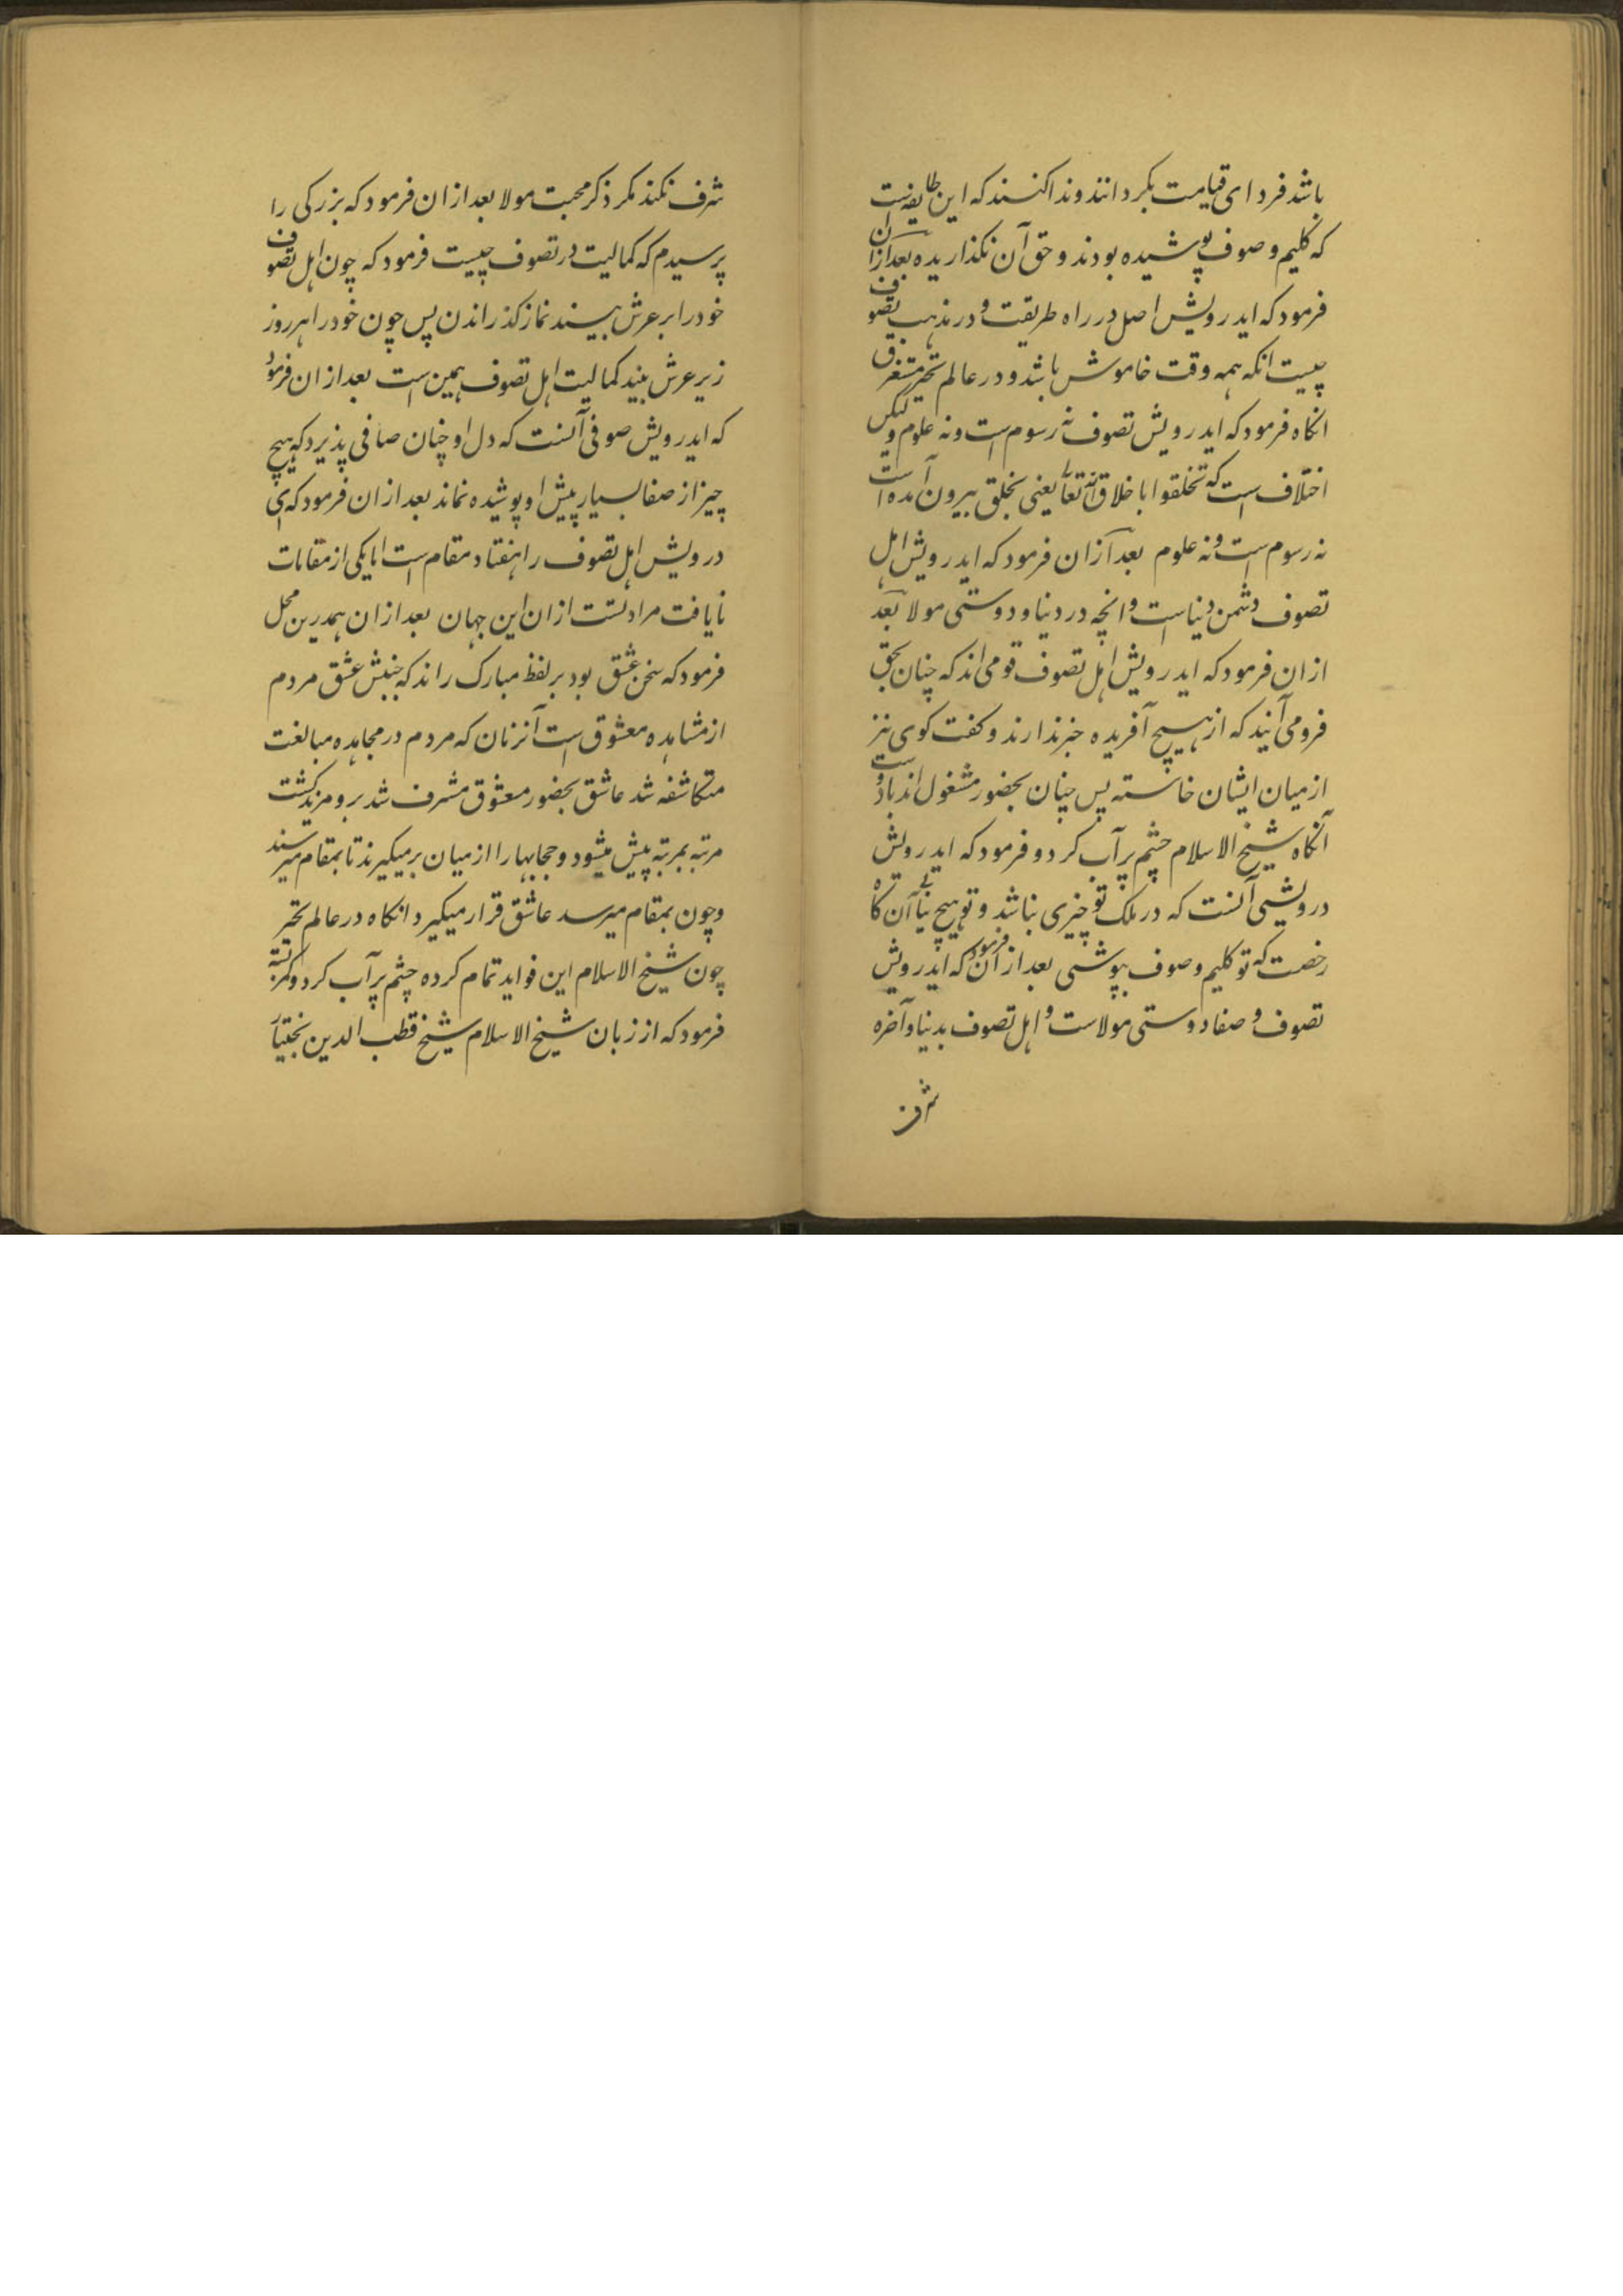 باشد فردای قیامت بکردانند و ندا کنند که این طایفه است
که کلیم و صوف پوشیده بودند و حق آن نکذاریده بعد ازان
فرمود که ایدرویش اصل در راه طریقت و در مذهب تصوف
چیست انکه همه وقت خاموش باشد و در عالم تحیر مستغرق
انکاه فرمود که ایدرویش تصوف نه رسوم است و نه علوم ولیکن
اختلاف است که تخلقوا باخلاق الله تعا یعنی بخلق بیرون آمده است
نه رسوم است و نه علوم بعد ازان فرمود که ایدرویش اهل
تصوف دشمن دنیا است و انچه در دنیا و دوستی مولا بعد
ازان فرمود که ایدرویش اهل تصوف قومی اند که چنان بحق
فرومی آیند که از هیچ آفریده خبر ندارند و کفت کوی نیز
از میان ایشان خاسته پس چنان بحضور مشغول اند با دوست
آنکاه شیخ الاسلام چشم پر آب کرد و فرمود که ایدرویش
درویشی آنست که در ملک تو چیزی نباشد و تو هیچ نیابی آن کاه
رخصت که تو کلیم و صوف بپوشی بعد ازان فرمود که ایدرویش
تصوف و صفا دوستی مولاست و اهل تصوف بدنیا و آخره
شرف
شرف نکند مکر ذکر محبت مولا بعد ازان فرمود که بزرکی را
پرسیدم که کمالیت در تصوف چیست فرمود که چون اهل تصوف
خود را بر عرش ببینند نماز کذراندن پس چون خود را هر روز
زیر عرش بیند کمالیت اهل تصوف همین است بعد ازان فرمود
که ایدرویش صوفی آنست که دل او چنان صافی پذیرد که هیچ
چیز از صفا بسیار پیش او پوشیده نماند بعد ازان فرمود که ای
درویش اهل تصوف را هفتاد مقام است اما یکی از مقامات
نایافت مرادست ازان این جهان بعد ازان همدرین محل
فرمود که سخن عشق بود بر لفظ مبارک راند که جنبش عشق مردم
از مشاهده معشوق است آنزمان که مردم در مجاهده مبالغت
متکاشفه شد عاشق بحضور معشوق مشرف شد برو مزید کشت
مرتبه بمرتبه پیش میشود و حجابها را از میان برمیکیرند تا بمقام میرسند
و چون بمقام میرسد عاشق قرار میکیرد انکاه در عالم تحیر
چون شیخ الاسلام این فواید تمام کرده چشم پر آب کرد و
فرمود که از زبان شیخ الاسلام شیخ قطب الدین بختیار